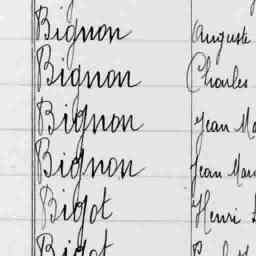 Bignon Auguste
Bignon Charles
Bignon Jean Ma
Bignon Jean Mar
Bigot Henri
Bigot